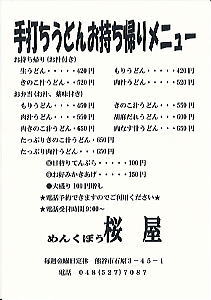 手打ちうどんお持ち帰りメニュー
お持ち帰り(お汁付き)
生うどん・・・・・420円 もりうどん・・・・・420円
きのこ汁うどん・・・520円 肉汁うどん・・・・・520円
お弁当(お汁、薬味付き)
もりうどん・・・・・450円 きのこ汁うどん・・・550円
肉汁うどん・・・・・550円 胡麻だれうどん・・・600円
肉きのこ汁うどん・・650円 肉なす汁うどん・・・650円
たっぷりきのこ汁うどん・650円
たっぷり肉汁うどん・・650円
◎日替りてんぷら・・・・100円
◎お好みかきあげ・・・・150円
●大盛り100円増し
★電話予約できますのでご利用ください★
★電話受付時間9:00~
めんくぼう 桜屋
毎週金曜日定休 熊谷市石原3-45-1
電話 048(527)7087